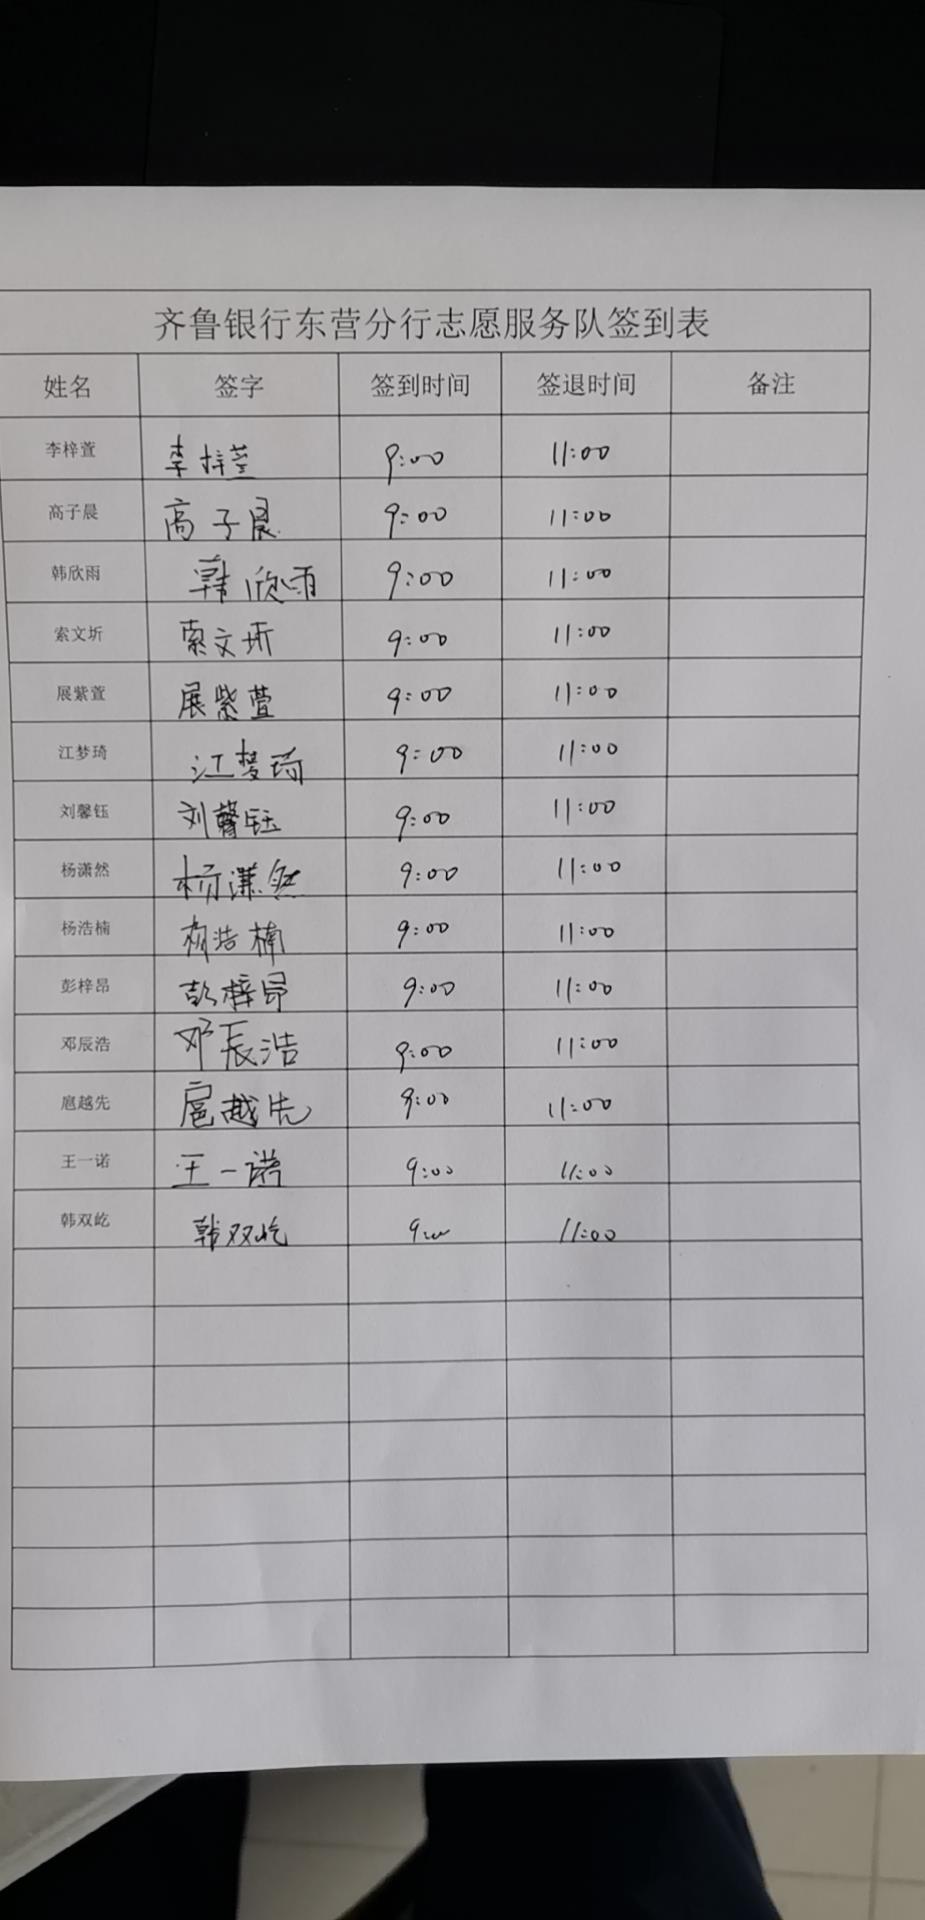 齐鲁银行东营分行志愿服务队签到表
姓名 签字 签到时间 签退时间 备注
李梓萱 李梓萱 9:00 11:00
高子晨 高子晨 9:00 11:00
韩欣雨 韩欣雨 9:00 11:00
索文圻 索文圻 9:00 11:00
展紫萱 展紫萱 9:00 11:00
江梦琦 江梦琦 9:00 11:00
刘馨钰 刘馨钰 9:00 11:00
杨潇然 杨潇然 9:00 11:00
杨浩楠 杨浩楠 9:00 11:00
彭梓昂 彭梓昂 9:00 11:00
邓辰浩 邓辰浩 9:00 11:00
扈越先 扈越先 9:00 11:00
王一诺 王一诺 9:00 11:00
韩双屹 韩双屹 9:00 11:00